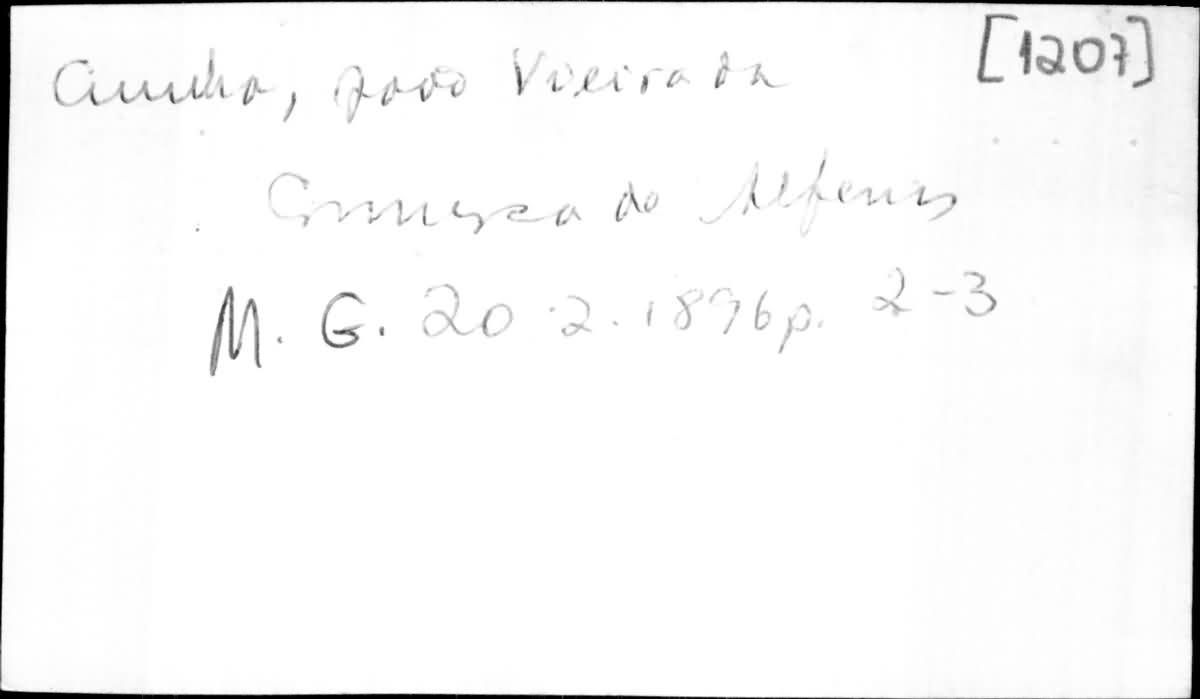 Cunha, João Vieira da [1207]
Comarca de Alfenas
M. G. 20.2.1896 p. 2-3